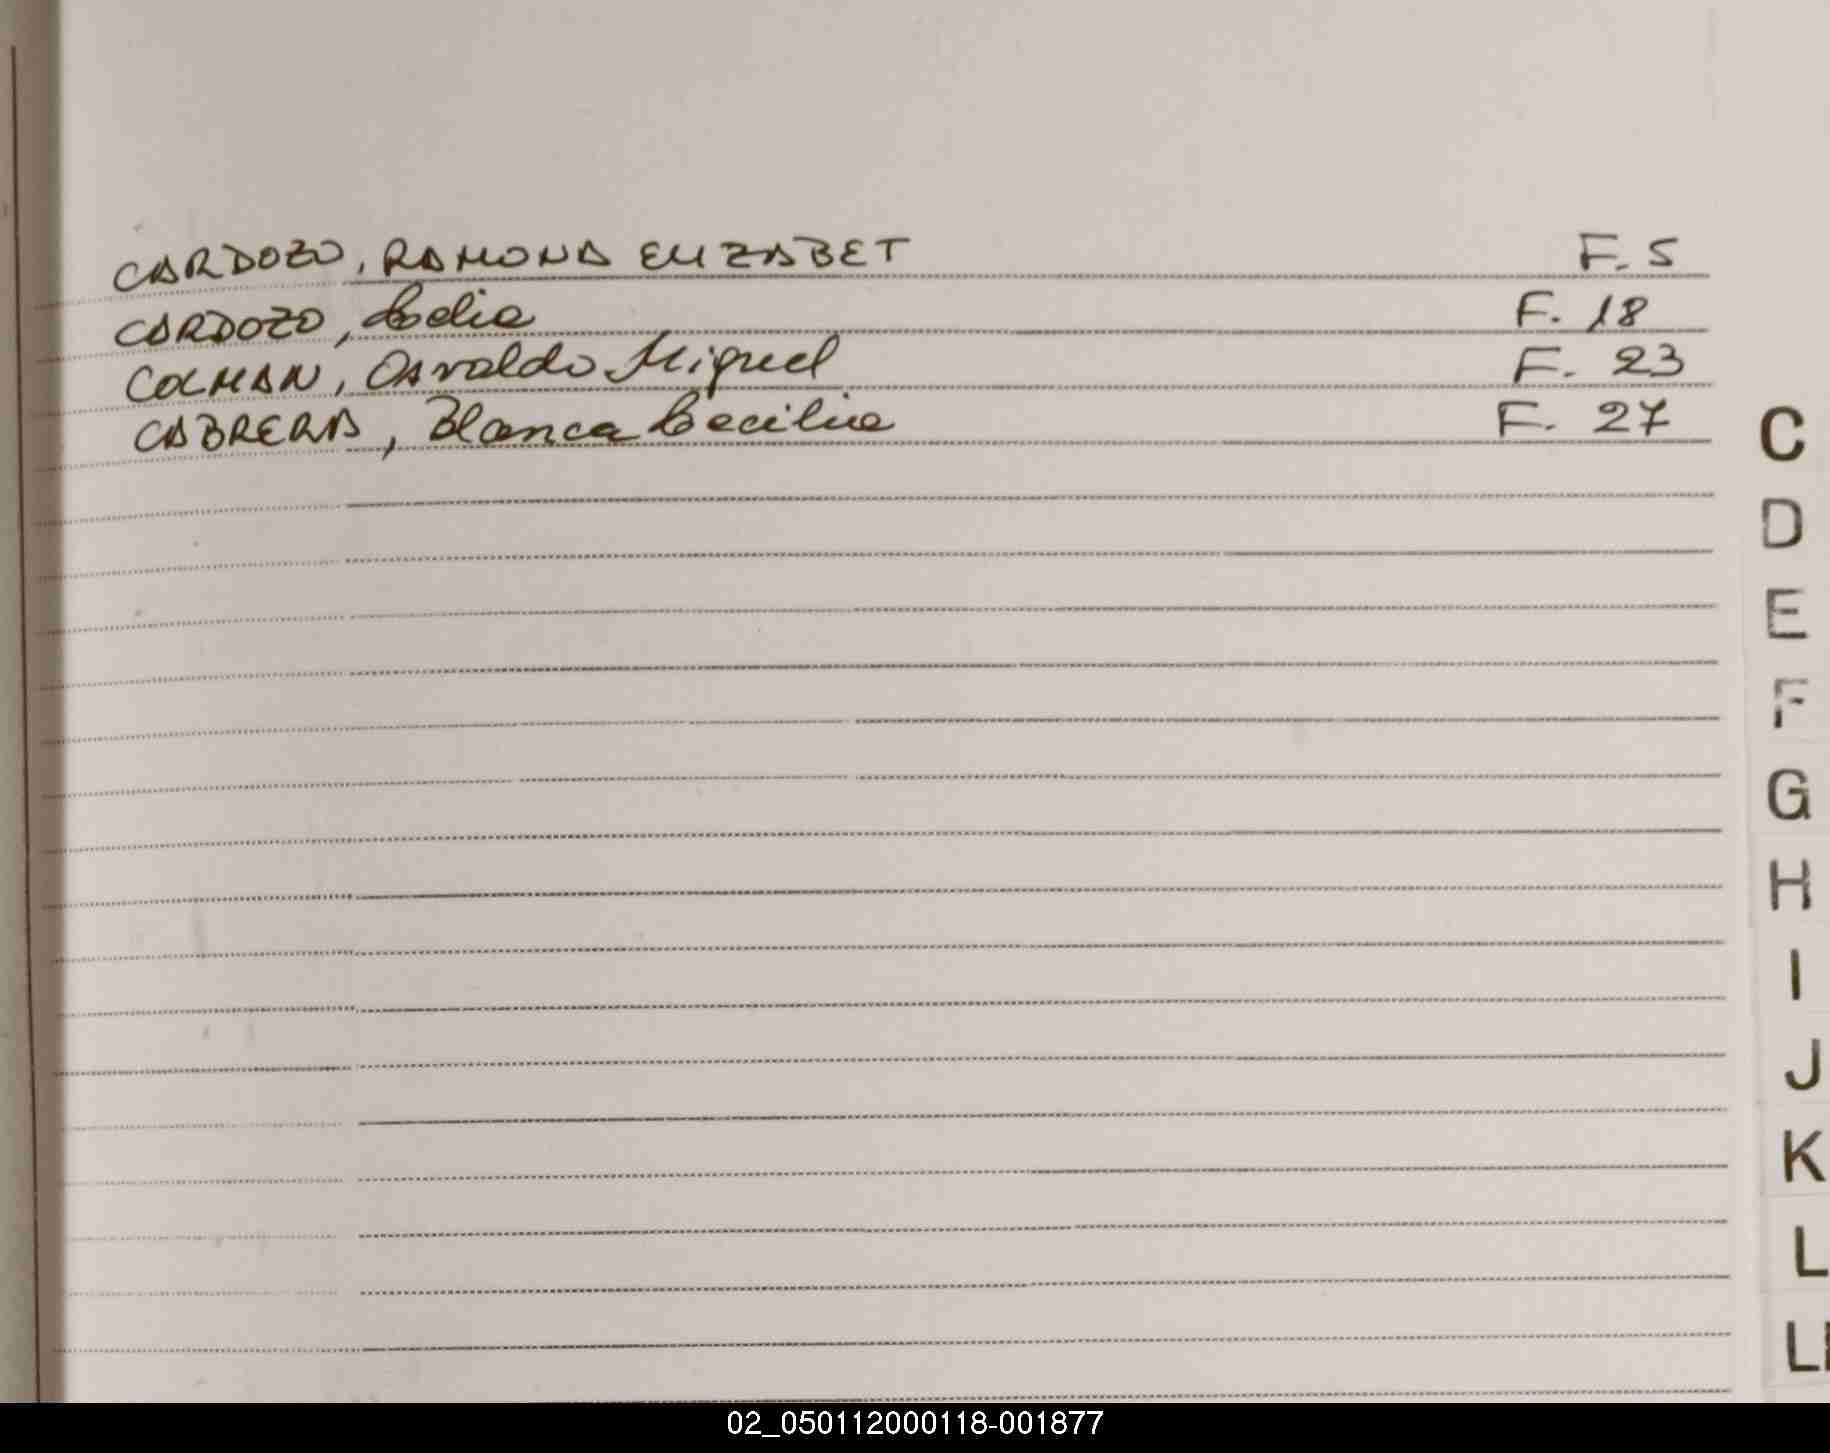 CARDOZO, RAMONA ELIZABET F. 5
CARDOZO, F. 18
COLMAN, Osvaldo Miguel F. 23
CABRERA, Blanca Cecilia F. 27
C
D
E
F
G
H
I
J
K
L
LL
02_050112000118-001877